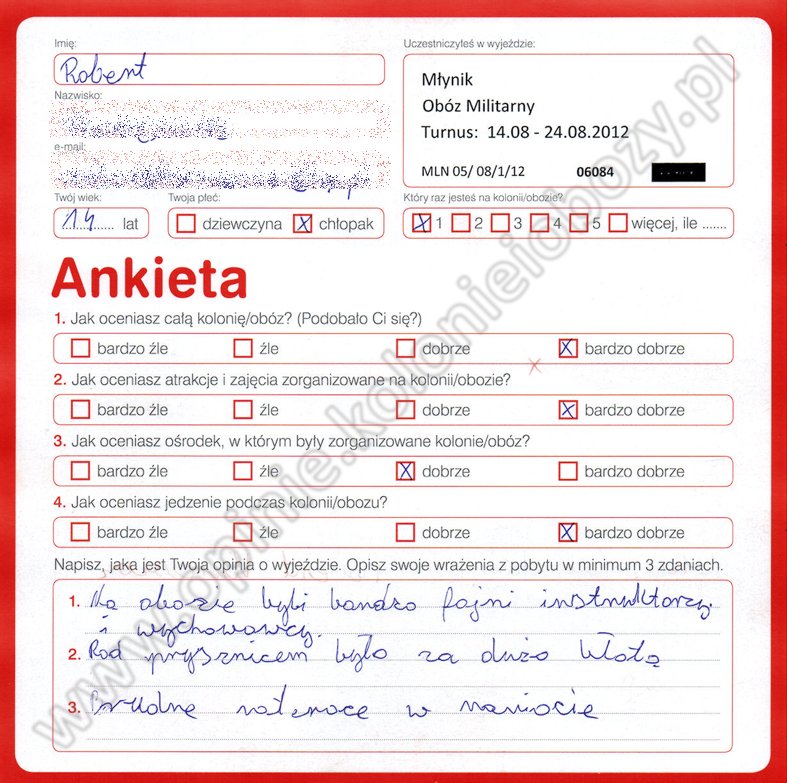 Imię:
Uczestniczyłeś w wyjeździe:
Robert
Młynik
Obóz Militarny
Turnus: 14.08 - 24.08.2012
MLN 05/ 08/1/12 06084
Nazwisko:
e-mail:
Twój wiek:
Twoja płeć:
Który raz jesteś na kolonii/obozie?
14 lat
dziewczyna X chłopak
X 1 2 3 4 5 więcej, ile .......
Ankieta
1. Jak oceniasz całą kolonię/obóz? (Podobało Ci się?)
bardzo źle źle dobrze X bardzo dobrze
2. Jak oceniasz atrakcje i zajęcia zorganizowane na kolonii/obozie?
bardzo źle źle dobrze X bardzo dobrze
3. Jak oceniasz ośrodek, w którym były zorganizowane kolonie/obóz?
bardzo źle źle X dobrze bardzo dobrze
4. Jak oceniasz jedzenie podczas kolonii/obozu?
bardzo źle źle dobrze X bardzo dobrze
Napisz, jaka jest Twoja opinia o wyjeździe. Opisz swoje wrażenia z pobytu w minimum 3 zdaniach.
1. Na obozie byli bardzo fajni instruktorzy
i wychowawcy.
2. Pod prysznicem było za dużo błota
3. Brudne materace w namiocie
www.opinie.kolonieiobozy.pl